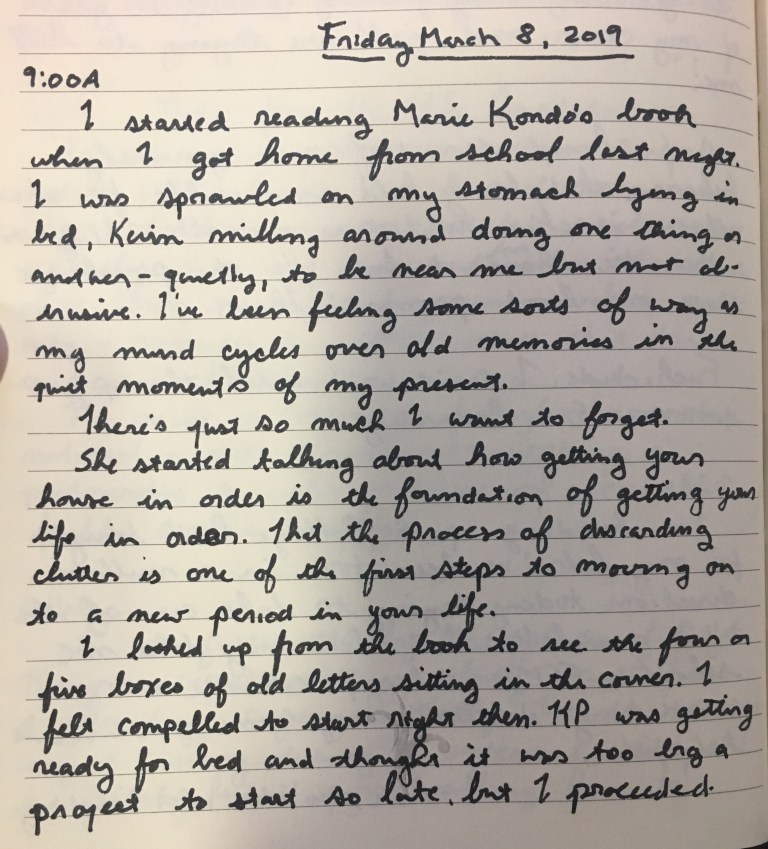 Friday March 8, 2019
9:00A
I started reading Marie Kondo's book
when I got home from school last night.
I was sprawled on my stomach lying in
bed, Kevin milling around doing one thing or
another - quietly, to be near me but not ob-
trusive. I've been feeling some sorts of way as
my mind cycles over old memories in the
quiet moments of my present.
There's just so much I want to forget.
She started talking about how getting your
house in order is the foundation of getting your
life in order. That the process of discarding
clutter is one of the first steps to moving on
to a new period in your life.
I looked up from the book to see the four or
five boxes of old letters sitting in the corner. I
felt compelled to start right then. KP was getting
ready for bed and thought it was too big a
project to start so late, but I proceeded.